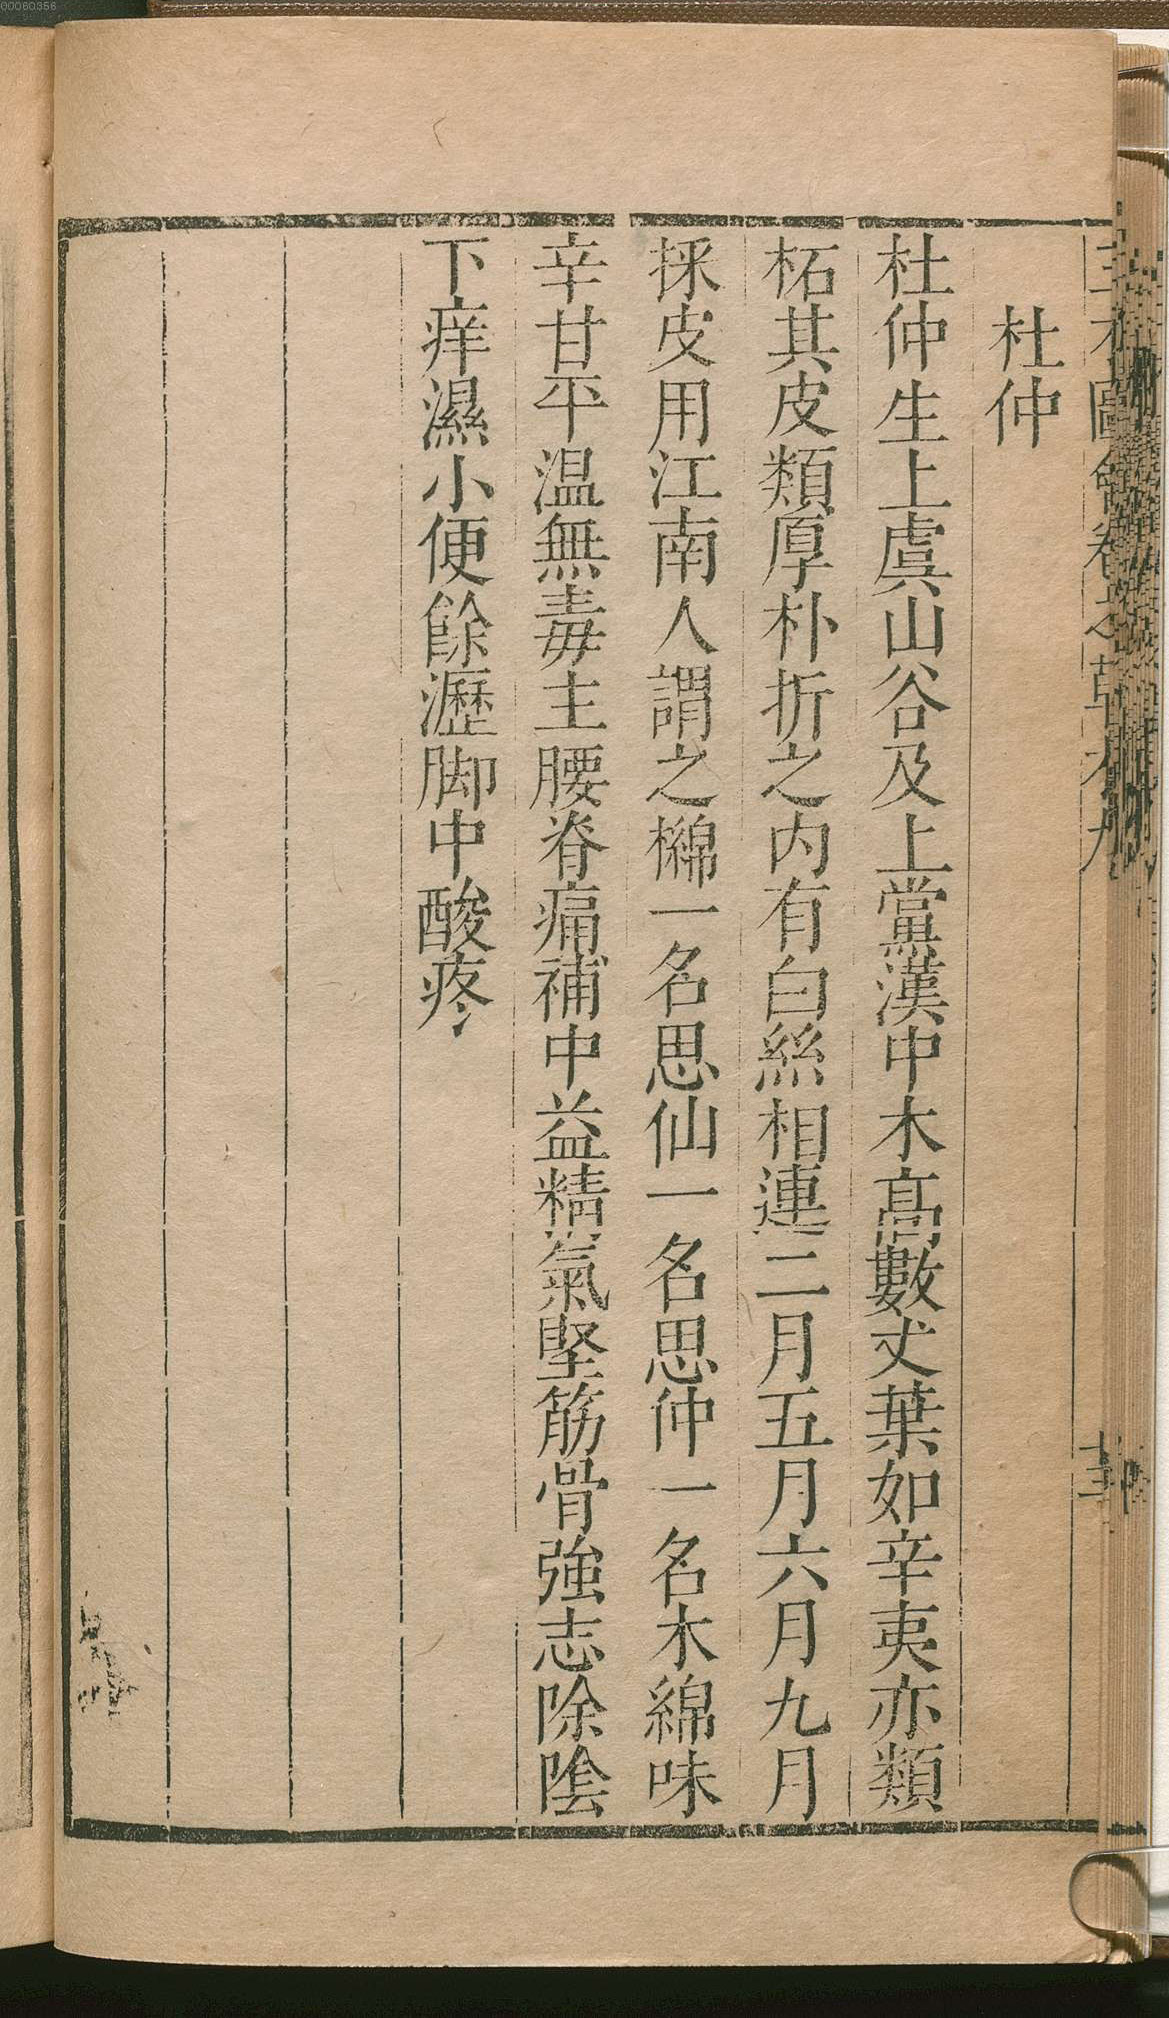 杜仲
杜仲生上虞山谷及上黨漢中木髙數丈葉如辛夷亦類
柘其皮類厚朴折之内有白絲相連二月五月六月九月
採皮用江南人謂之檰一名思仙一名思仲一名木綿味
辛甘平温無毒主腰脊痛補中益精氣堅筋骨強志除隂
下痒濕小便餘瀝脚中酸疼
00060356